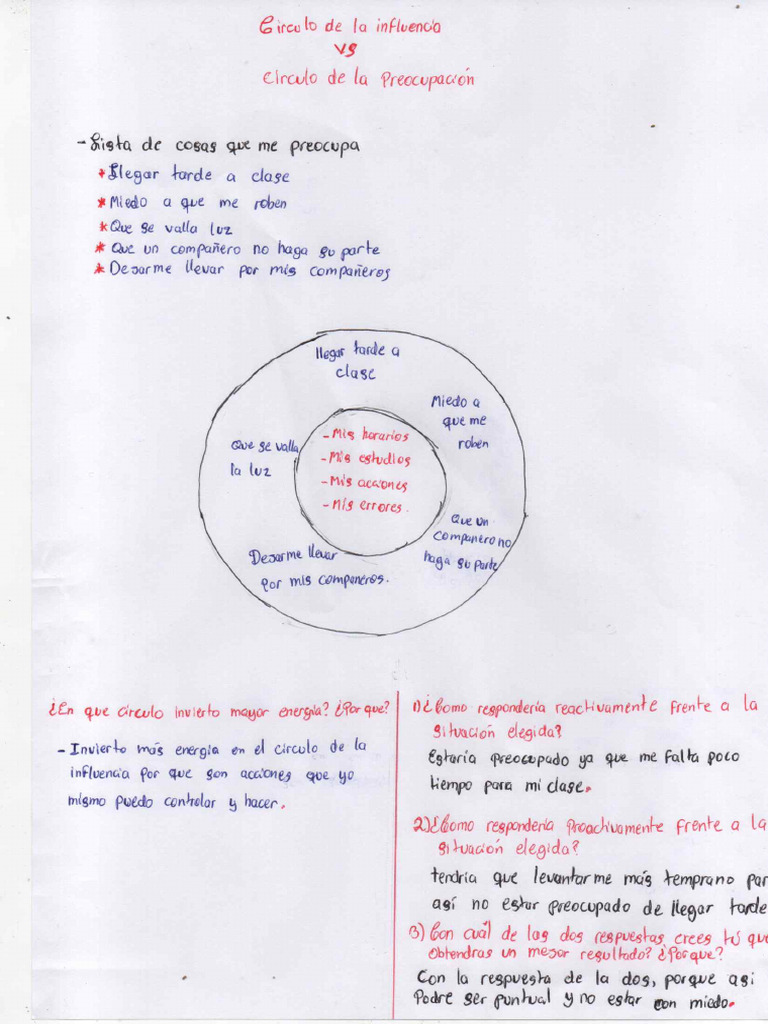 Circulo de la influencia
vs
Círculo de la Preocupación
- Lista de cosas que me preocupa
* Llegar tarde a clase
* Miedo a que me roben
* Que se valla luz
* Que un compañero no haga su parte
* Dejarme llevar por mis compañeros
llegar tarde a
clase
Miedo a
que me
roben
Que se valla
la luz
- Mis horarios
- Mis estudios
- Mis acciones
- Mis errores.
Que un
compañero no
haga su parte
Dejarme llevar
por mis compañeros.
¿En que círculo invierto mayor energía? ¿Por que?
- Invierto más energia en el circulo de la
influencia por que son acciones que yo
mismo puedo controlar y hacer.
1) ¿Como respondería reactivamente frente a la
situación elegida?
Estaría preocupado ya que me falta poco
tiempo para mi clase.
2) ¿Como responderia Proactivamente frente a la
situación elegida?
tendria que levantarme más temprano par
así no estar preocupado de llegar tarde
3) Con cuál de las dos respuestas crees tú que
obtendras un mejor resultado? ¿Porque?
Con la respuesta de la dos, porque asi
Podre ser puntual y no estar con miedo.